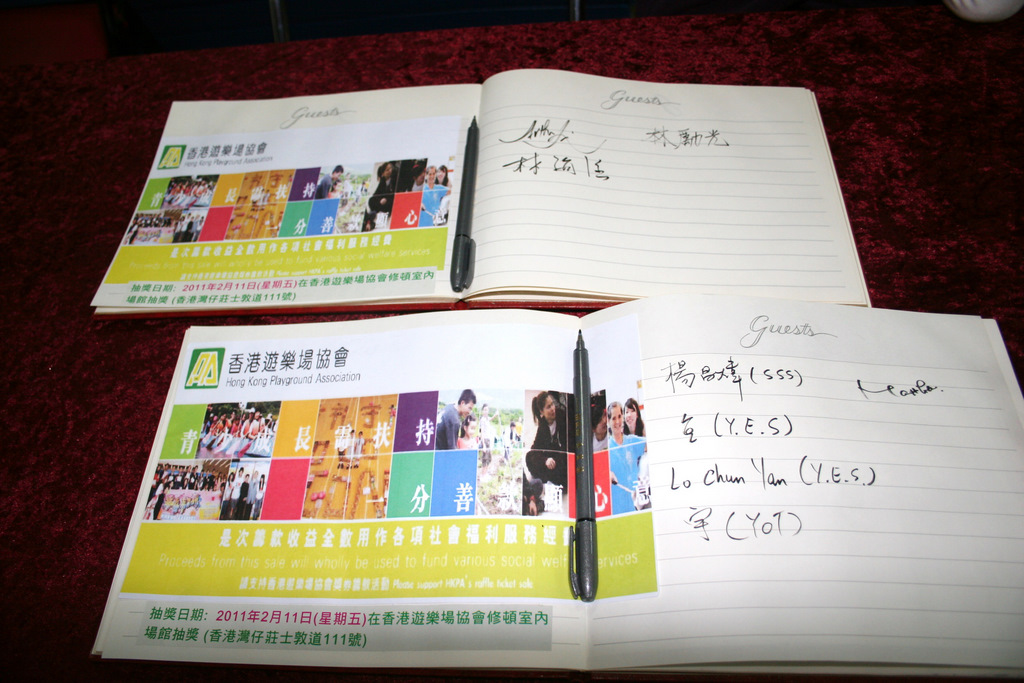 Guests
Guests
香港遊樂場協會
Hong Kong Playground Association
林勤光
青 成長需扶持
一分善 心意
是次籌款收益全數用作各項社會福利服務經費
Proceeds from this sale will wholly be used to fund various social welfare services
抽獎日期: 2011年2月11日(星期五)在香港遊樂場協會修頓室內
場館抽獎 (香港灣仔莊士敦道111號)
Guests
香港遊樂場協會
Hong Kong Playground Association
楊昌煒 (SSS)
(Y.E.S)
Lo Chun Yan (Y.E.S.)
宇 (YOT)
青少成長需扶持
一分善 願心意
是次籌款收益全數用作各項社會福利服務經
Proceeds from this sale will wholly be used to fund various social welf services
請支持香港遊樂場協會 活動 Please support HKPA's raffle ticket sale
抽獎日期: 2011年2月11日(星期五)在香港遊樂場協會修頓室內
場館抽獎 (香港灣仔莊士敦道111號)